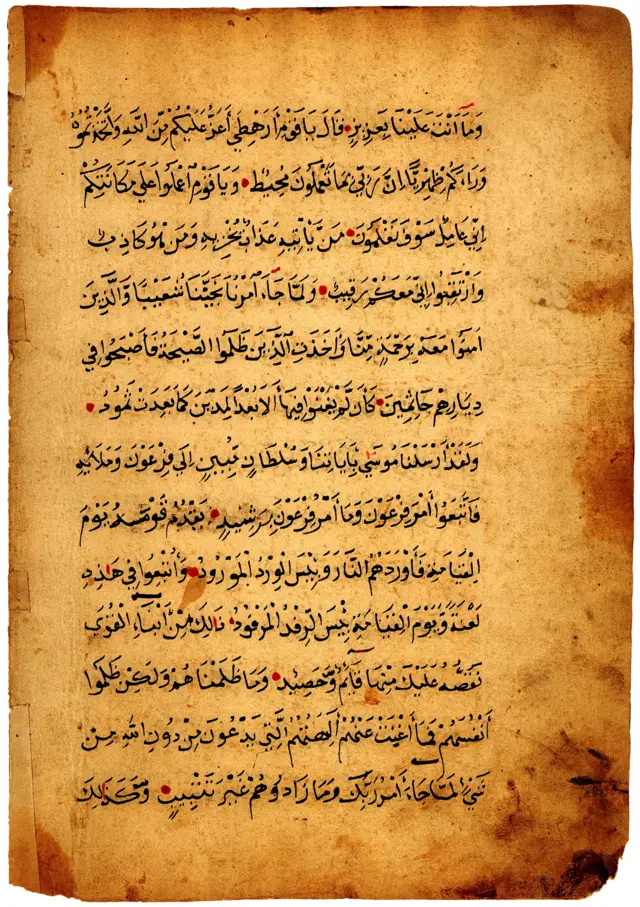 وَمَا أَنْتَ عَلَيْنَا بِعَزِيزٍ قَالَ يَا قَوْمِ أَرَهْطِي أَعَزُّ عَلَيْكُمْ مِنَ اللَّهِ وَاتَّخَذْتُمُوهُ
وَرَاءَكُمْ ظِهْرِيًّا إِنَّ رَبِّي بِمَا تَعْمَلُونَ مُحِيطٌ وَيَا قَوْمِ اعْمَلُوا عَلَى مَكَانَتِكُمْ
إِنِّي عَامِلٌ سَوْفَ تَعْلَمُونَ مَنْ يَأْتِيهِ عَذَابٌ يُخْزِيهِ وَمَنْ هُوَ كَاذِبٌ
وَارْتَقِبُوا إِنِّي مَعَكُمْ رَقِيبٌ وَلَمَّا جَاءَ أَمْرُنَا نَجَّيْنَا شُعَيْبًا وَالَّذِينَ
آمَنُوا مَعَهُ بِرَحْمَةٍ مِنَّا وَأَخَذَتِ الَّذِينَ ظَلَمُوا الصَّيْحَةُ فَأَصْبَحُوا فِي
دِيَارِهِمْ جَاثِمِينَ كَأَنْ لَمْ يَغْنَوْا فِيهَا أَلَا بُعْدًا لِمَدْيَنَ كَمَا بَعِدَتْ ثَمُودُ
وَلَقَدْ أَرْسَلْنَا مُوسَى بِآيَاتِنَا وَسُلْطَانٍ مُبِينٍ إِلَى فِرْعَوْنَ وَمَلَائِهِ
فَاتَّبَعُوا أَمْرَ فِرْعَوْنَ وَمَا أَمْرُ فِرْعَوْنَ بِرَشِيدٍ يَقْدُمُ قَوْمَهُ يَوْمَ
الْقِيَامَةِ فَأَوْرَدَهُمُ النَّارَ وَبِئْسَ الْوِرْدُ الْمَوْرُودُ وَأُتْبِعُوا فِي هَذِهِ
لَعْنَةً وَيَوْمَ الْقِيَامَةِ بِئْسَ الرِّفْدُ الْمَرْفُودُ ذَلِكَ مِنْ أَنْبَاءِ الْقُرَى
نَقُصُّهُ عَلَيْكَ مِنْهَا قَائِمٌ وَحَصِيدٌ وَمَا ظَلَمْنَاهُمْ وَلَكِنْ ظَلَمُوا
أَنْفُسَهُمْ فَمَا أَغْنَتْ عَنْهُمْ آلِهَتُهُمُ الَّتِي يَدْعُونَ مِنْ دُونِ اللَّهِ مِنْ
شَيْءٍ لَمَّا جَاءَ أَمْرُ رَبِّكَ وَمَا زَادُوهُمْ غَيْرَ تَتْبِيبٍ وَكَذَلِكَ